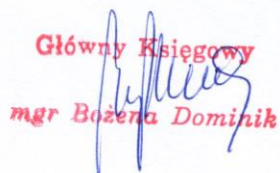 Główny Księgowy
mgr Bożena Dominik